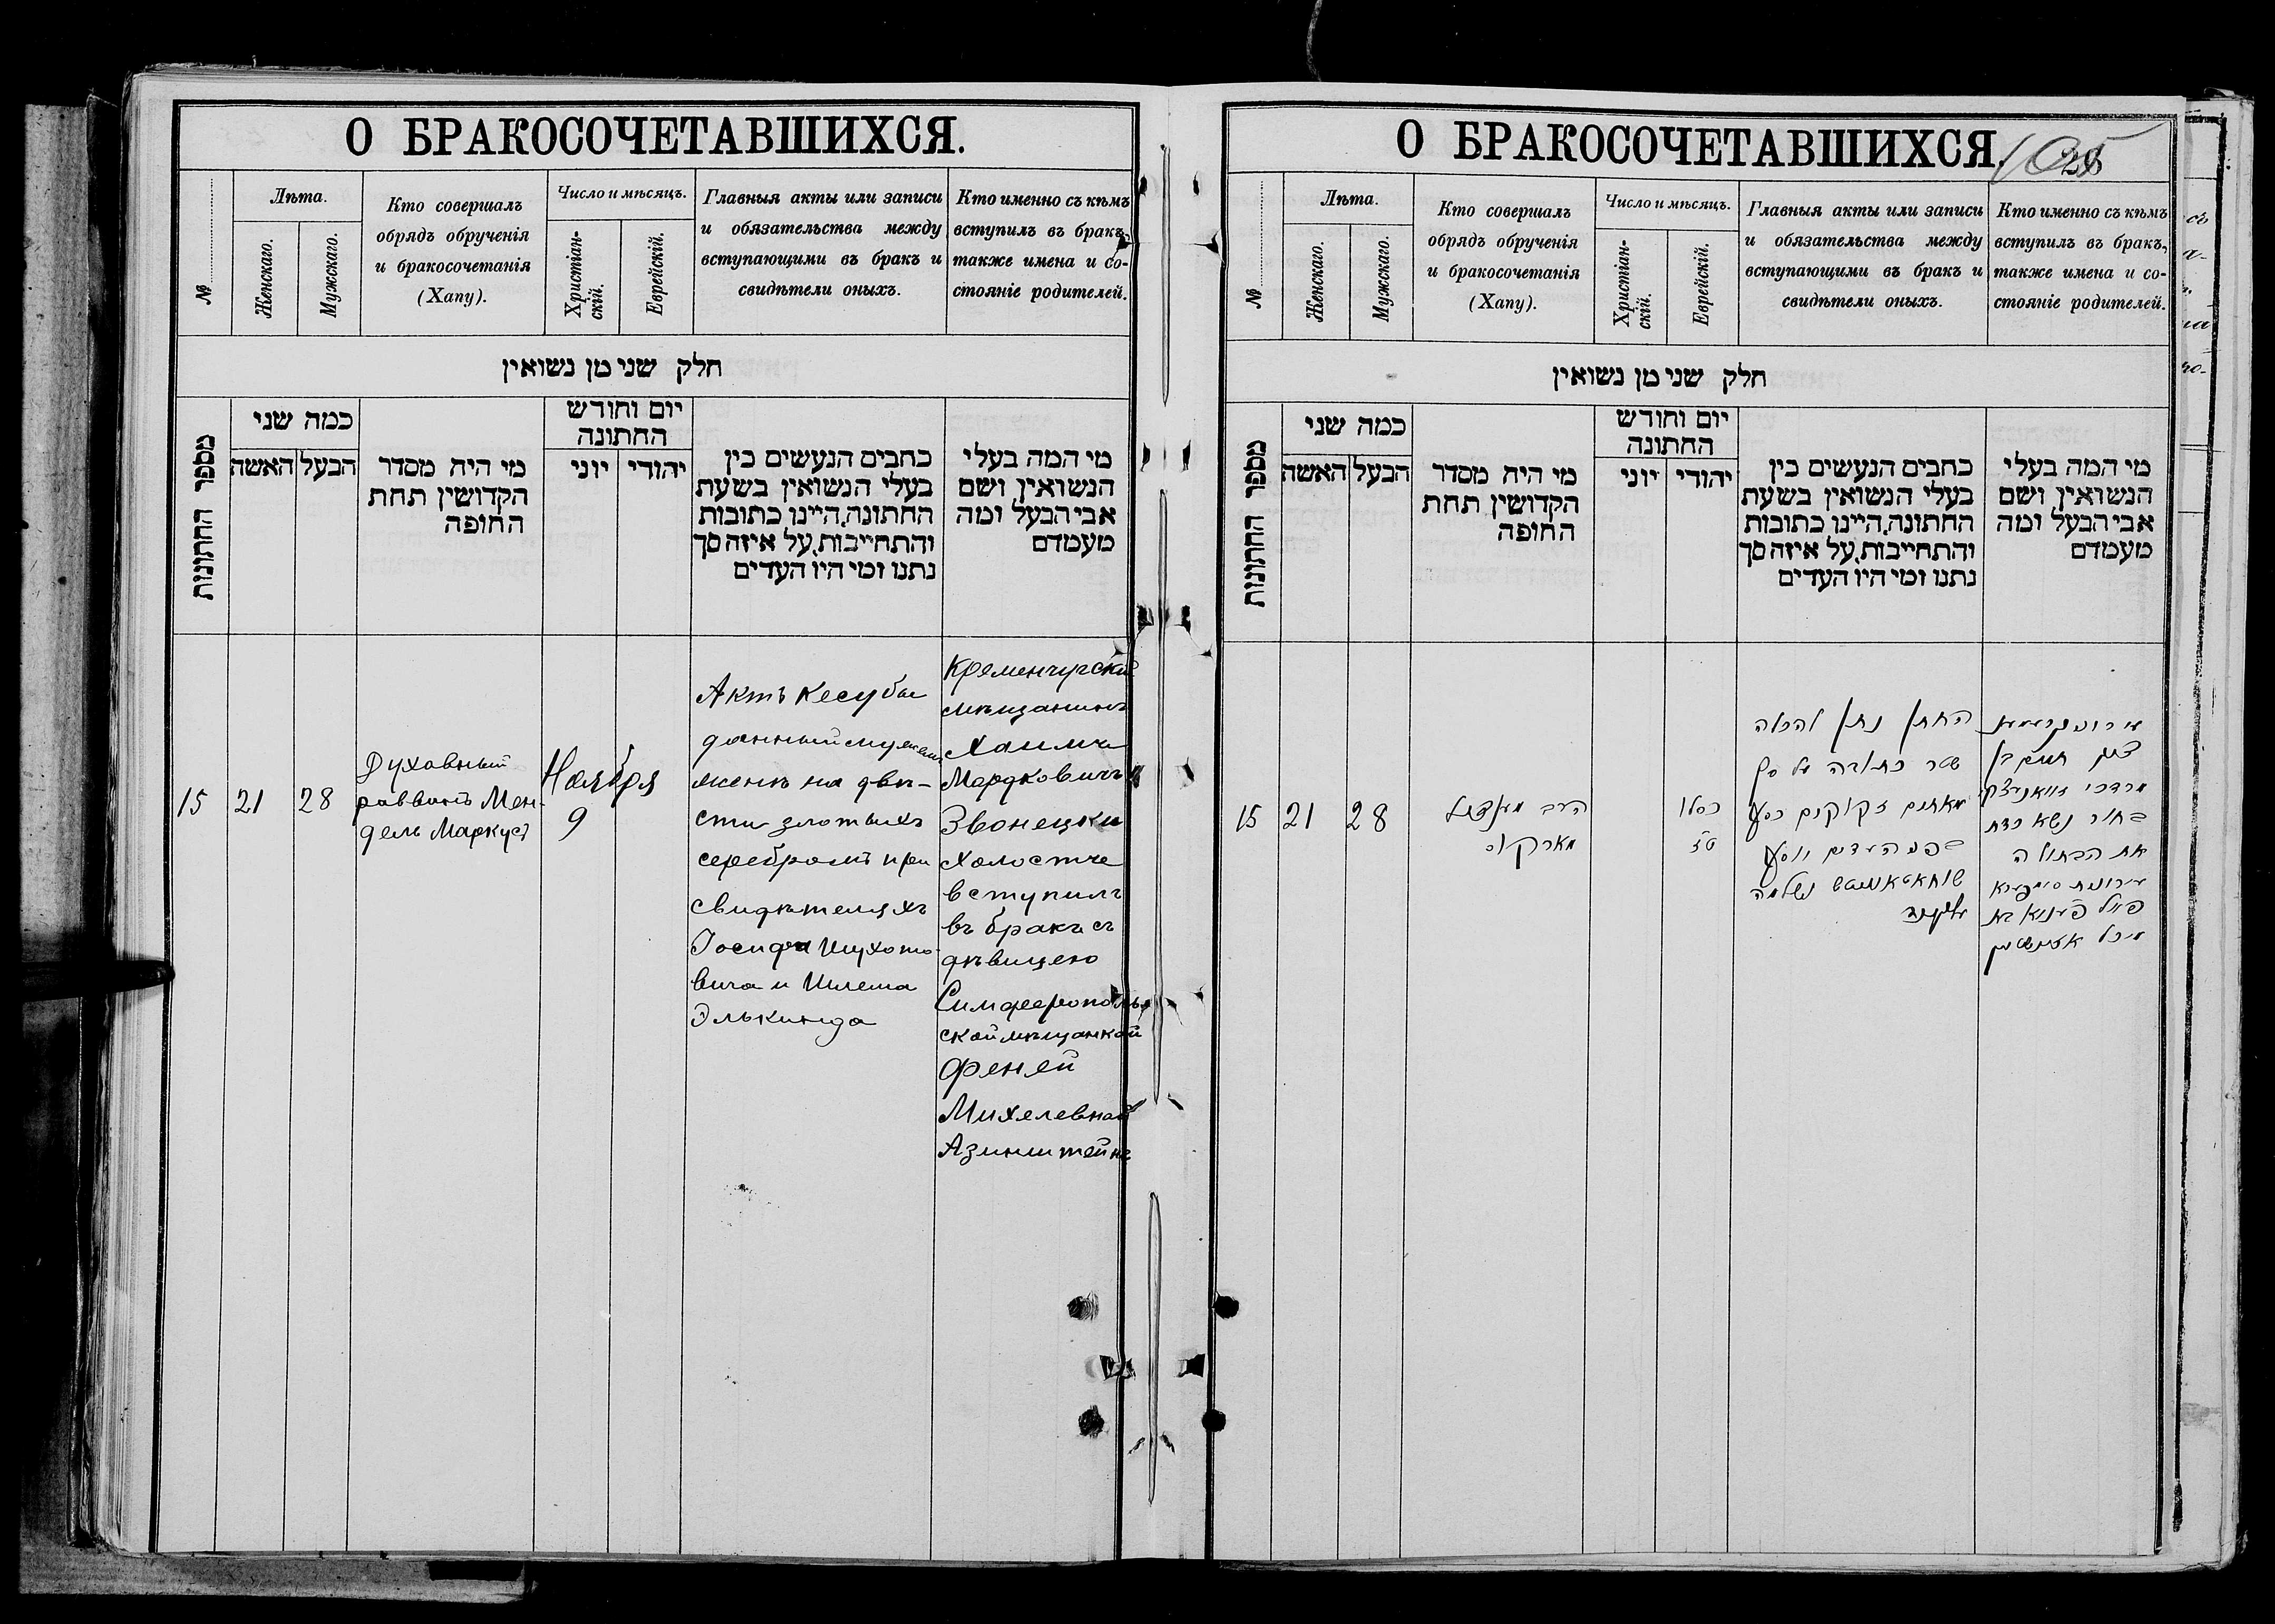 О БРАКОСОЧЕТАВШИХСЯ.
№
Лѣта.
Женскаго.
Мужскаго.
Кто совершалъ
обрядъ обрученія
и бракосочетанія
(Хапу).
Число и мѣсяцъ.
Христіан-
скій.
Еврейскій.
Главныя акты или записи
и обязательства между
вступающими въ бракъ и
свидѣтели оныхъ.
Кто именно съ кѣмъ
вступилъ въ бракъ,
также имена и со-
стояніе родителей.
חלק שני מן נשואין
מספר החתונות
כמה שני
האשה
הבעל
מי היה מסדר
הקדושין תחת
החופה
יום וחודש
החתונה
יוני
יהודי
כתבים הנעשים בין
בעלי הנשואין בשעת
החתונה, היינו כתובות
והתחייבות, על איזה סך
נתנו ומי היו העדים
מי המה בעלי
הנשואין ושם
אבי הבעל ומה
מעמדם
15
21
28
Духовный
раввинъ Мен-
дель Маркусъ
Ноября
9
Актъ Кесубы
данный мужемъ
женѣ на двѣ-
сти злотыхъ
серебромъ при
свидѣтеляхъ
Іосифа Шухато-
вича и Шлема
Элькинда
Кременчугскій
мѣщанинъ
Хаимъ
Мордковичъ
Звонецкій
холостче
вступилъ
въ бракъ съ
дѣвицею
Симферополь-
ской мѣщанкой
Феней
Михелевной
Азинштейнъ
О БРАКОСОЧЕТАВШИХСЯ.
105
№
Лѣта.
Женскаго.
Мужскаго.
Кто совершалъ
обрядъ обрученія
и бракосочетанія
(Хапу).
Число и мѣсяцъ.
Христіан-
скій.
Еврейскій.
Главныя акты или записи
и обязательства между
вступающими въ бракъ и
свидѣтели оныхъ.
Кто именно съ кѣмъ
вступилъ въ бракъ,
также имена и со-
стояніе родителей.
חלק שני מן נשואין
מספר החתונות
כמה שני
האשה
הבעל
מי היה מסדר
הקדושין תחת
החופה
יום וחודש
החתונה
יוני
יהודי
כתבים הנעשים בין
בעלי הנשואין בשעת
החתונה, היינו כתובות
והתחייבות, על איזה סך
נתנו ומי היו העדים
מי המה בעלי
הנשואין ושם
אבי הבעל ומה
מעמדם
15
21
28
הרב מענדיל
מארקוס
כסלו
טז
החתן נתן להכלה
שטר כתובה על סך
מאתים זקוקים כסף
בפני העדים יוסף
ושלמה
עלקינד
חיים בן
מרדכי זוואניצקי
בחור נשא כדת
את הבתולה
עירונית סימפערא
פויל פעניא בת
מיכל